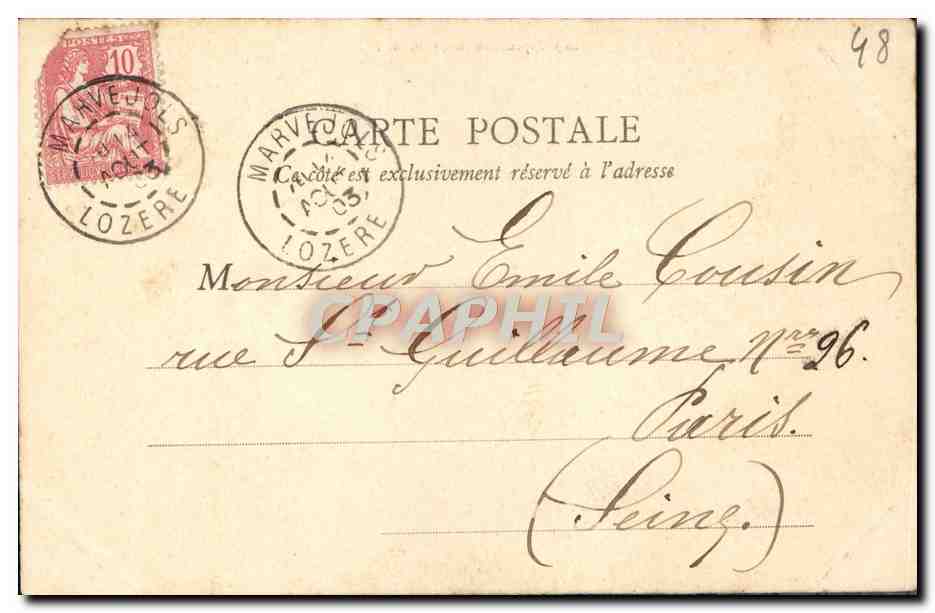 48
POSTES
10
MARVEJOLS
14
AOUT
03
LOZERE
MARVEJOLS
AOUT
03
LOZERE
CARTE POSTALE
Ce côté est exclusivement réservé à l'adresse
Monsieur Emile Cousin
CPAPHIL
rue St Guillaume Nrr 26.
Paris.
(Seine.)